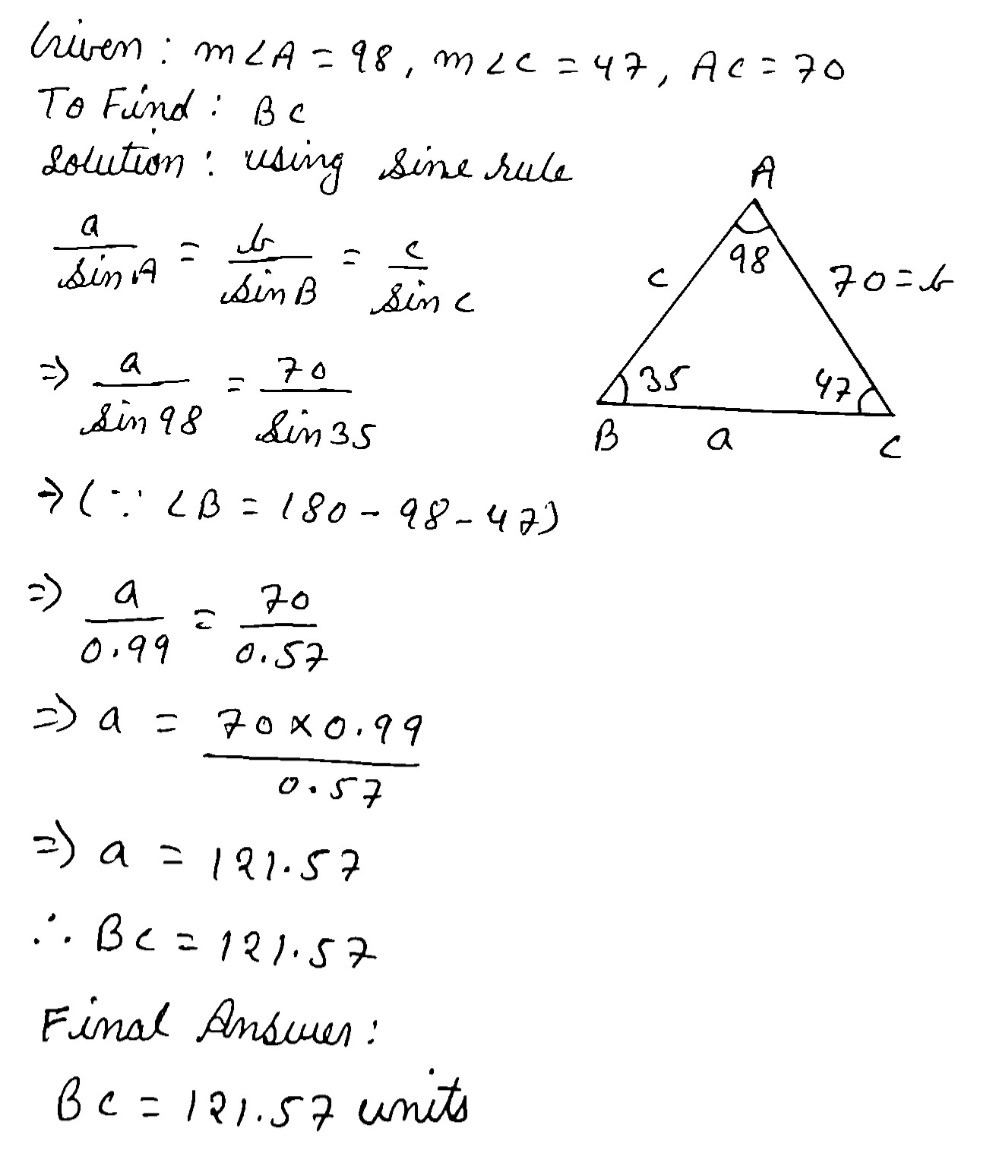 Given : m∠A = 98, m∠C = 47, AC = 70
To Find : BC
Solution : using sine rule
a/sin A = b/sin B = c/sin C
⇒ a/sin 98 = 70/sin 35
→ (∵ ∠B = 180 - 98 - 47)
⇒ a/0.99 = 70/0.57
⇒ a = 70 × 0.99/0.57
⇒ a = 121.57
∴ BC = 121.57
Final Answer :
BC = 121.57 units
A
98
c
70 = b
35
47
B
a
C